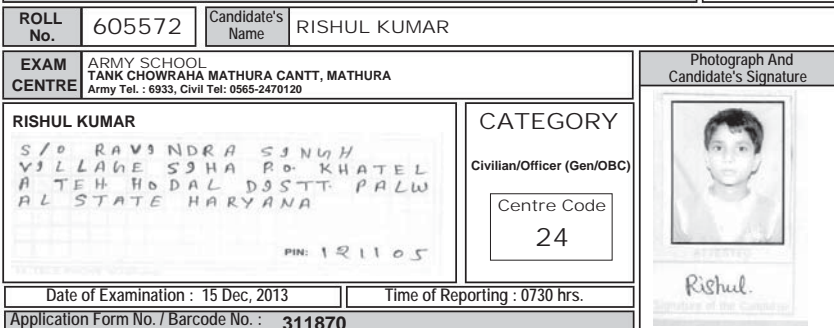 ROLL No. 605572 Candidate's Name RISHUL KUMAR
EXAM CENTRE
ARMY SCHOOL
TANK CHOWRAHA MATHURA CANTT, MATHURA
Army Tel. : 6933, Civil Tel: 0565-2470120
Photograph And
Candidate's Signature
RISHUL KUMAR
S/O RAVINDRA SINGH
VILLAGE SIHA P.O. KHATEL
A TEH. HODAL DISTT. PALW
AL STATE HARYANA
PIN: 121105
CATEGORY
Civilian/Officer (Gen/OBC)
Centre Code
24
ATTESTED
Rishul.
Signature of the Candidate
Date of Examination : 15 Dec, 2013 Time of Reporting : 0730 hrs.
Application Form No. / Barcode No. : 311870